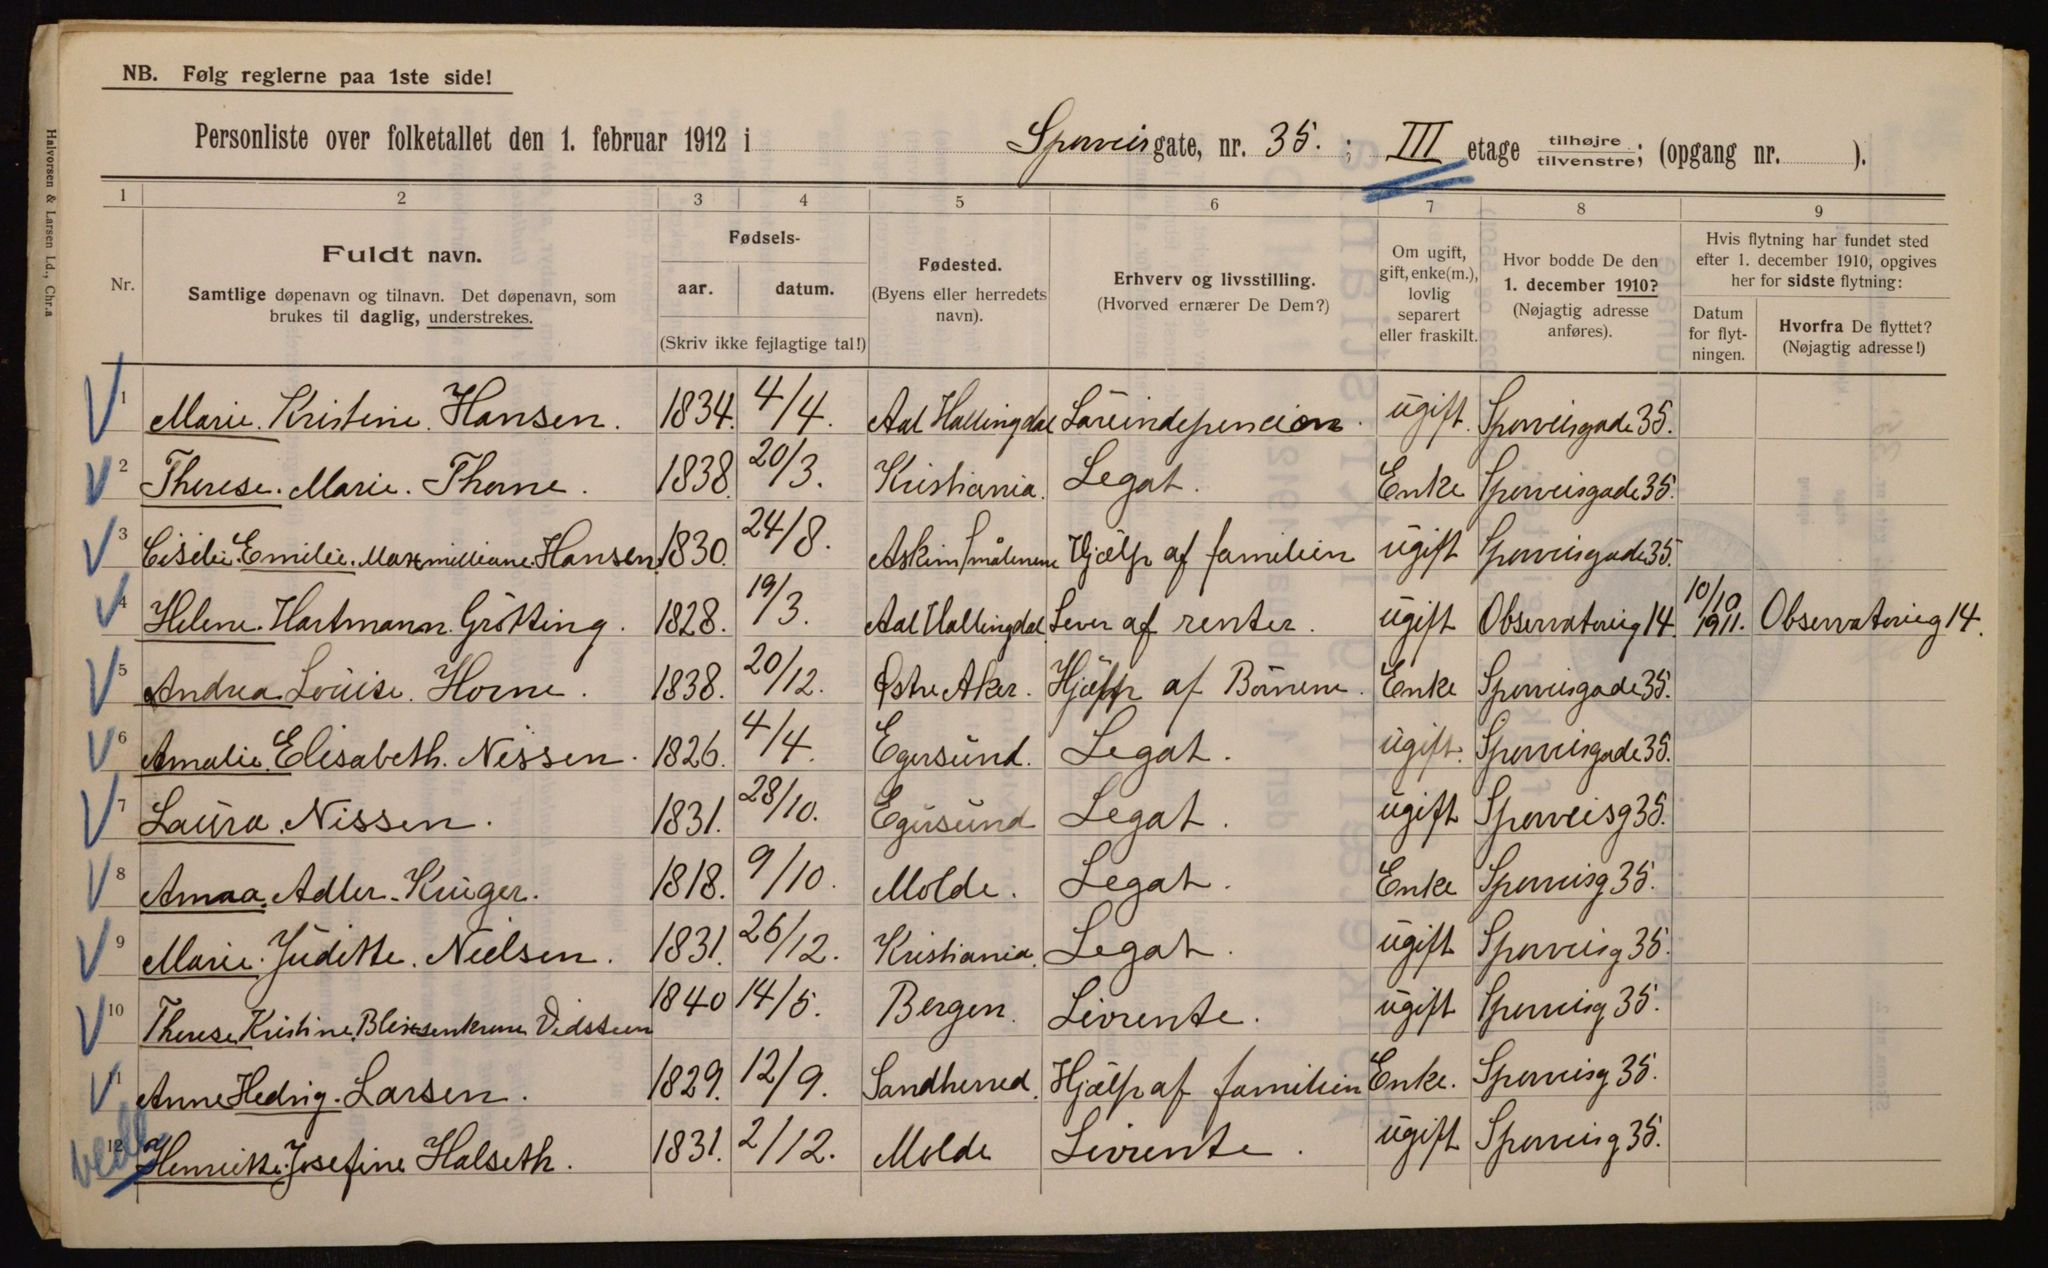 NB. Følg reglerne paa 1ste side!
Personliste over folketallet den 1. februar 1912 i Sporveisgate, nr. 35. ; III etage tilhøjre/tilvenstre; (opgang nr. ).
1 2 3 4 5 6 7 8 9
Nr.
Fuldt navn.
Samtlige døpenavn og tilnavn. Det døpenavn, som
brukes til daglig, understrekes.
Fødsels-
aar. datum.
(Skriv ikke fejlagtige tal!)
Fødested.
(Byens eller herredets
navn).
Erhverv og livsstilling.
(Hvorved ernærer De Dem?)
Om ugift,
gift, enke(m.),
lovlig
separert
eller fraskilt.
Hvor bodde De den
1. december 1910?
(Nøjagtig adresse
anføres).
Hvis flytning har fundet sted
efter 1. december 1910, opgives
her for sidste flytning:
Datum
for flyt-
ningen.
Hvorfra De flyttet?
(Nøjagtig adresse!)
1 Marie. Kristine. Hansen. 1834. 4/4. Aal Hallingdal ugift. Sporveisgade 35.
2 Therese. Marie. Thorne. 1838. 20/3. Kristiania. Legat. Enke Sporveisgade 35.
3 Cisilie. Emilie. Maxmilliane. Hansen. 1830. 24/8. Askim Smålenene Hjælp af familien ugift Sporveisgade 35.
4 Helene. Hartmann. Grötting. 1828. 19/3. Aal Hallingdal. Lever af renter. ugift Observatorieg 14. 10/10 1911. Observatorieg 14.
5 Andrea Louise. Horne. 1838. 20/12. Østre Aker. Hjælp af Börnene. Enke Sporveisgade 35.
6 Amalie. Elisabeth. Nissen. 1826. 4/4. Egersund. Legat. ugift. Sporveisgade 35.
7 Laura. Nissen. 1831. 28/10. Egersund Legat. ugift Sporveisg 35.
8 Adler. Krüger. 1818. 9/10. Molde. Legat. Enke Sporveisg 35.
9 Marie. Juditte. Nielsen. 1831. 26/12. Kristiania. Legat. ugift Sporveisg 35.
10 Therese. Kristine. Vidsteen 1840 14/5. Bergen. Livrente. ugift Sporveisg 35.
11 Anne Hedvig. Larsen. 1829. 12/9. Sandherred. Hjælp af familien Enke. Sporveisg 35.
12 Henriette. Josefine Halseth. 1831. 2/12. Molde Livrente. ugift Sporveisg 35.
Halvorsen & Larsen Ld., Chr.a